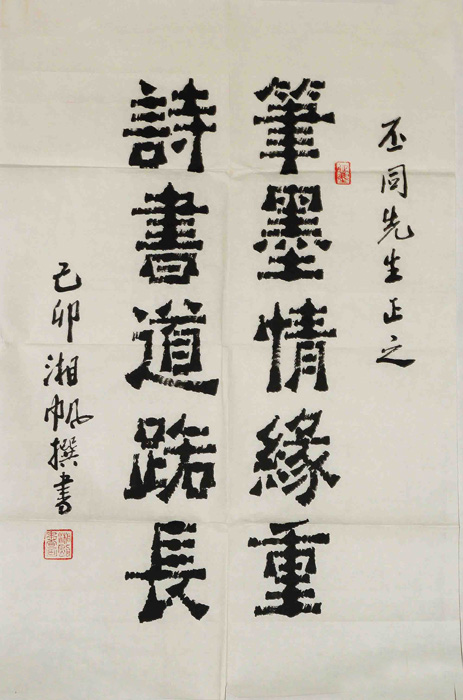 丕同先生正之
筆墨情緣重
詩書道路長
己卯湘帆撰書